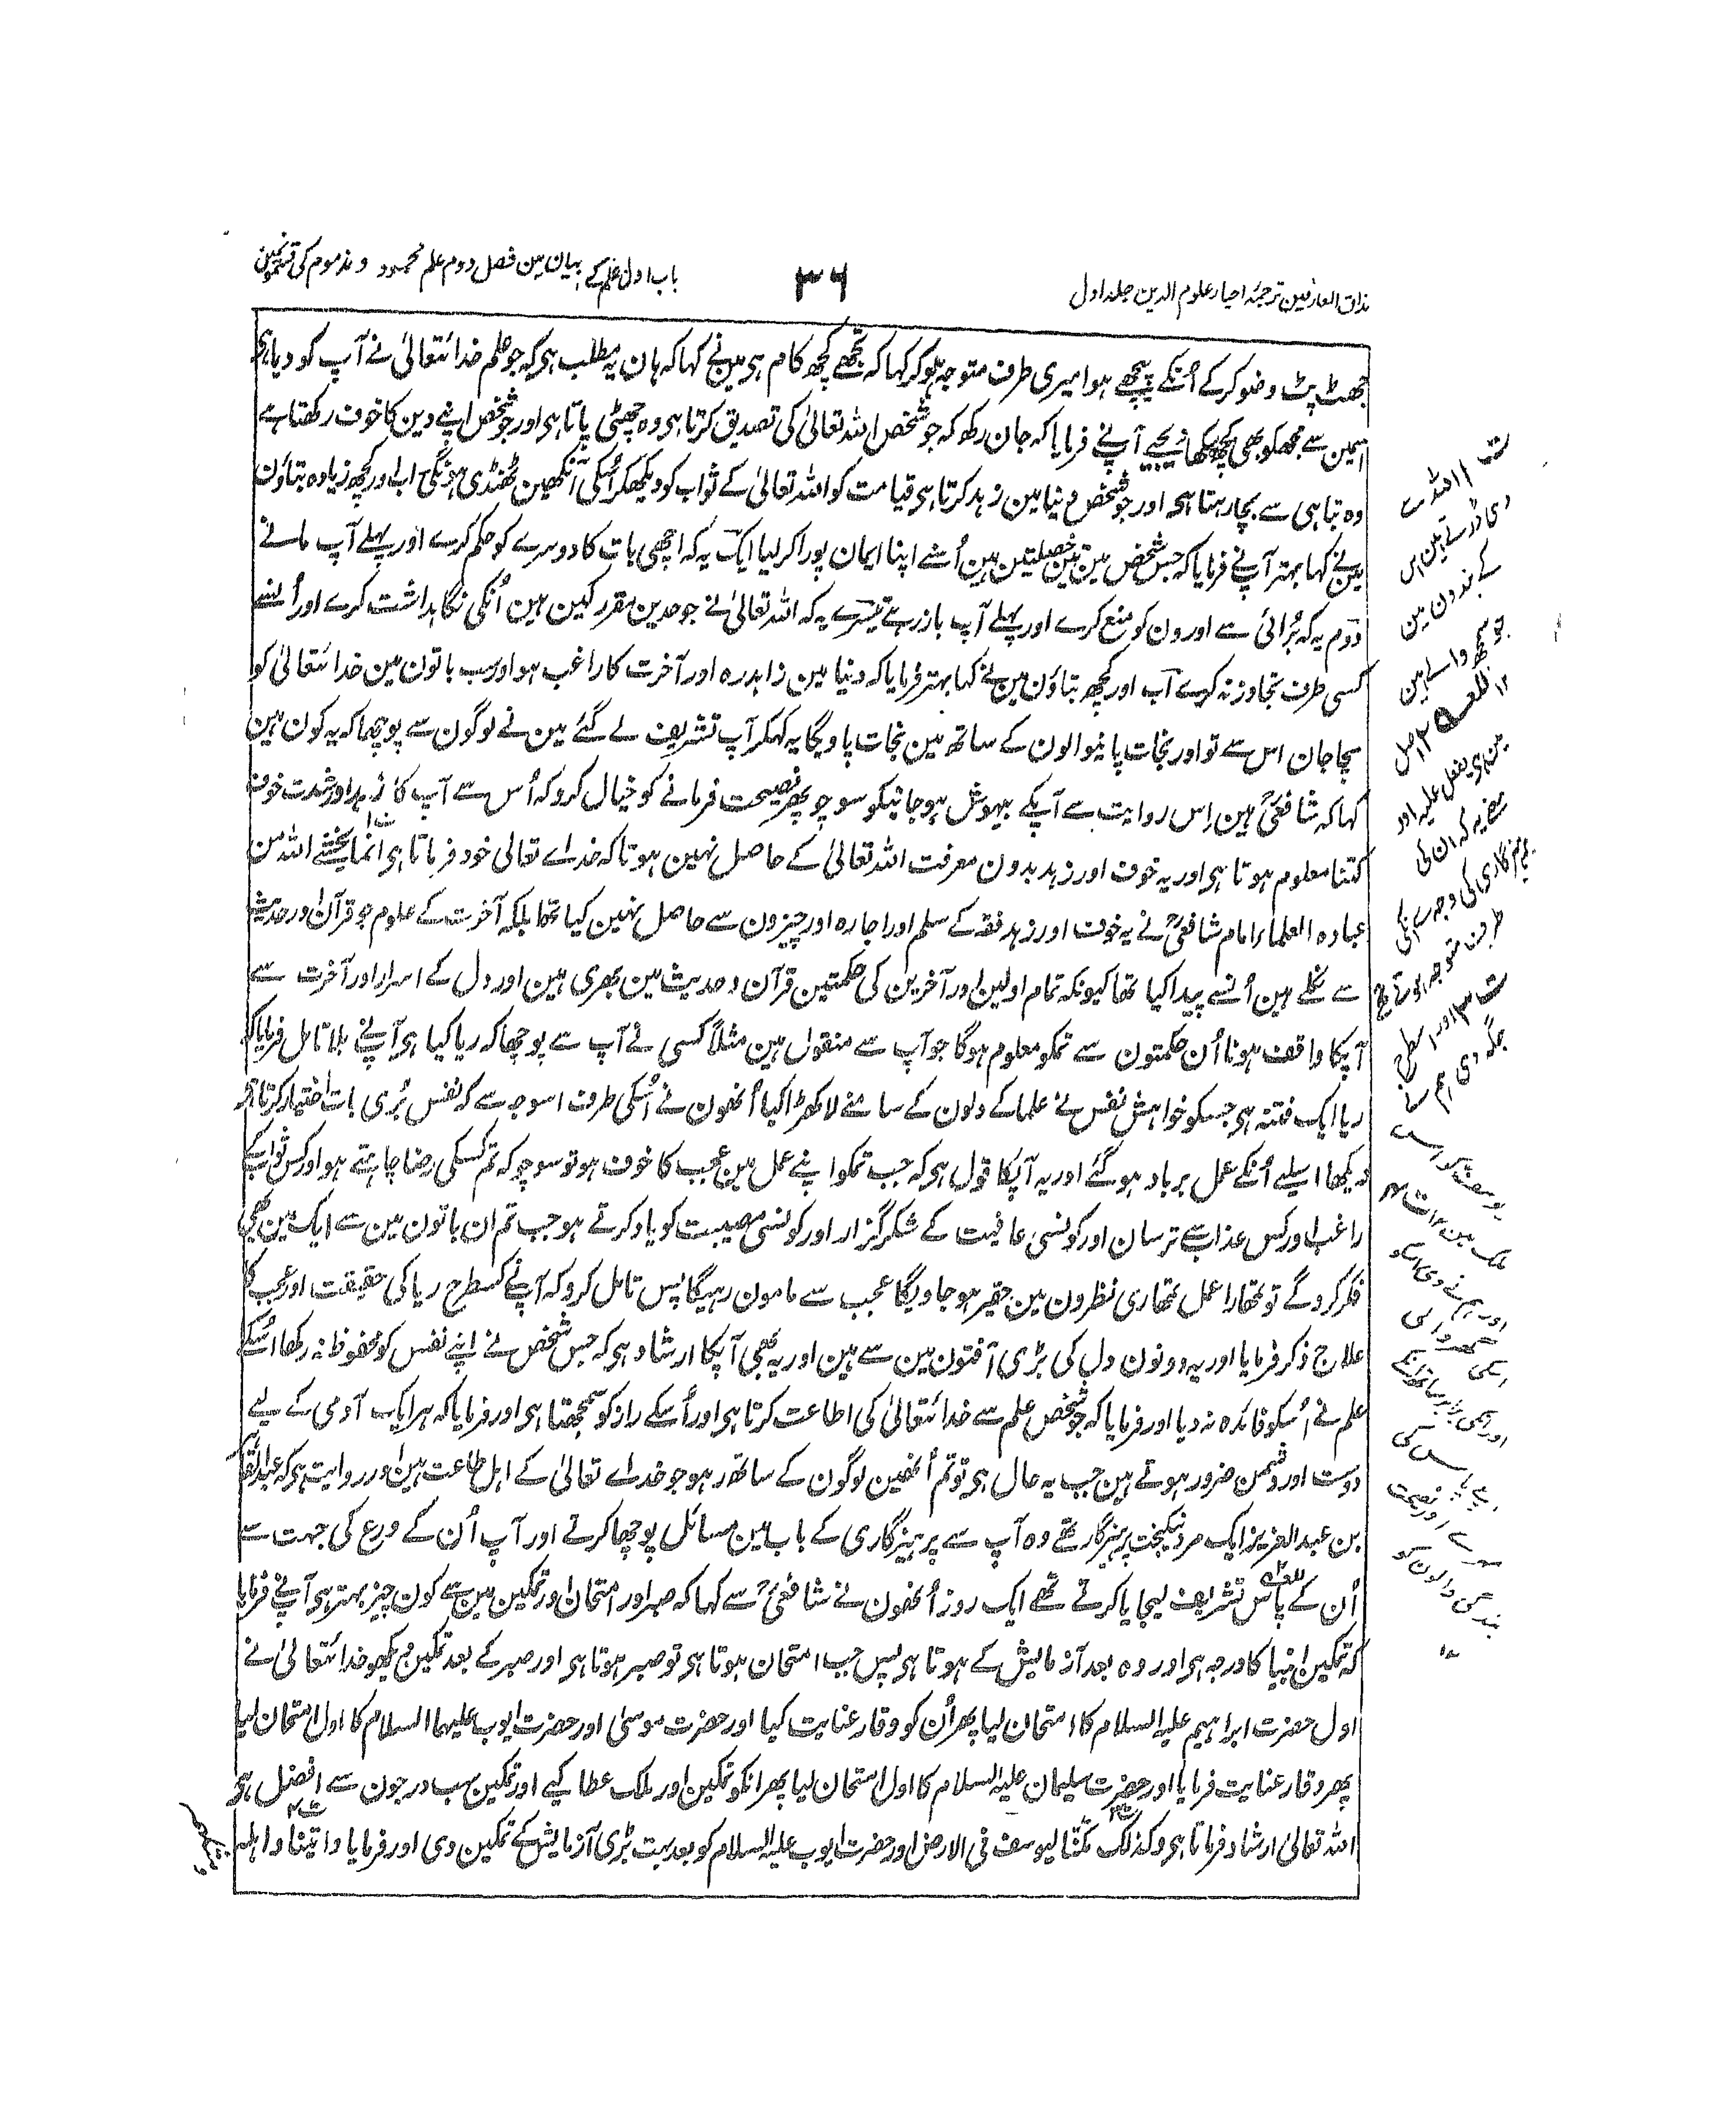 مذاق العارفین ترجمۂ احیاء علوم الدین جلد اول
۳۶
باب اول علم کے بیان مین فصل دوم علم محمود و مذموم کی قسمونمین
جھٹ پٹ وضو کرکے اُنکے پیچھے ہوا میری طرف متوجہ ہوکر کہا کہ تجھے کچھ کام ہی مین نے کہا کہ ہان یہ مطلب ہی کہ جو علم خدائتعالیٰ نے آپ کو دیا ہی
اسمین سے مجھکو بھی کچھ سکھائیے آپنے فرمایا کہ جان رکھو کہ جو شخص اللہ تعالیٰ کی تصدیق کرتا ہی وہ چھٹی پاتا ہی اور جو شخص اپنے دین کا خوف رکھتا ہے
وہ تباہی سے بچا رہتا ہی اور جو شخص دنیا مین زہد کرتا ہی قیامت کو اللہ تعالیٰ کے ثواب کو دیکھکر اُسکی آنکھین ٹھنڈی ہونگی اب اور کچھ زیادہ بتاؤن
مین نے کہا بہتر آپنے فرمایا کہ جس شخص مین تین خصلتین ہین اُسنے اپنا ایمان پورا کر لیا ایک یہ کہ اچھی بات کا دوسرے کو حکم کرے اور پہلے آپ مانے
دوم یہ کہ بُرائی سے اورون کو منع کرے اور پہلے آپ باز رہے تیسرے یہ کہ اللہ تعالیٰ نے جو حدین مقرر کین ہین اُنکی نگاہداشت کرے اور اُنسے
کسی طرف تجاوز نہ کرے اب اور کچھ بتاؤن مین نے کہا بہتر فرمایا کہ دنیا مین زاہد رہ اور آخرت کا راغب ہو اور سب باتون مین خدائتعالیٰ کو
سچا جان اس سے تو اور نجات پانیوالون کے ساتھ مین نجات پاویگا یہ کہکر آپ تشریف لے گئے مین نے لوگون سے پوچھا کہ یہ کون ہین
کہا کہ شافعیؒ ہین اِس روایت سے آپکے بیہوش ہوجانیکو سوچو پھر نصیحت فرمانے کو خیال کرو کہ اُس سے آپ کا زہد اور شدت خوف
کتنا معلوم ہوتا ہی اور یہ خوف اور زہد بدون معرفت اللہ تعالیٰ کے حاصل نہین ہوتا کہ خداے تعالی خود فرماتا ہی انما یخشے اللہ من
عبادہ العلماء امام شافعیؒ نے یہ خوف اور زہد فقہ کے سلم اور اجارہ اور چیزون سے حاصل نہین کیا تھا بلکہ آخرت کے علوم جو قرآن اور حدیث
سے نکلے ہین اُنسے پیدا کیا تھا کیونکہ تمام اولین اور آخرین کی حکمتین قرآن و حدیث مین بھری ہین اور دل کے اسرار اور آخرت سے
آپکا واقف ہونا اُن حکمتون سے تمکو معلوم ہوگا جو آپ سے منقول ہین مثلاً کسی نے آپ سے پوچھا کہ ریا کیا ہی آپنے بلا تامل فرمایا کہ
ریا ایک فتنہ ہی جسکو خواہش نفس نے علما کے دلون کے سامنے لا کھڑا کیا اُنھون نے اُسکی طرف اسوجہ سے کہ نفس بُری بات اختیار کرتا ہی
دیکھا اسلیے اُنکے عمل برباد ہوگئے اور یہ آپکا قول ہی کہ جب تمکو اپنے عمل مین عجب کا خوف ہو تو سوچو کہ تم کسکی رضا چاہتے ہو اور کس ثواب کے
راغب اور کس عذاب سے ترسان اور کونسی عافیت کے شکر گزار اور کونسی مصیبت کو یاد کرتے ہو جب تم ان باتون مین سے ایک مین بھی
فکر کروگے تو تمھارا عمل تمھاری نظرون مین حقیر ہوجاویگا عجب سے مامون رہیگا پس تامل کرو کہ آپنے کسطرح ریا کی حقیقت اور عجب کا
علاج ذکر فرمایا اور یہ دونون دل کی بڑی آفتون مین سے ہین اور یہ بھی آپکا ارشاد ہی کہ جس شخص نے اپنے نفس کو محفوظ نہ رکھا اُسکے
علم نے اُسکو فائدہ نہ دیا اور فرمایا کہ جو شخص علم سے خدائتعالیٰ کی اطاعت کرتا ہی اور اُسکے راز کو سمجھتا ہی اور فرمایا کہ ہر ایک آدمی کے لیے
دوست اور دشمن ضرور ہوتے ہین جب یہ حال ہی تو تم اُنھین لوگون کے ساتھ رہو جو خداے تعالیٰ کے اہل طاعت ہین اور روایت ہی کہ عبدالقاہر
بن عبدالعزیز ایک مرد نیکبخت پرہیزگار تھے وہ آپ سے پرہیزگاری کے باب مین مسائل پوچھا کرتے اور آپ اُن کے ورع کی جہت سے
اُن کے پاس تشریف لیجایا کرتے تھے ایک روز اُنھون نے شافعیؒ سے کہا کہ صبر اور امتحان اور تمکین مین سے کون چیز بہتر ہی آپنے فرمایا
کہ تمکین انبیا کا درجہ ہی اور وہ بعد آزمایش کے ہوتا ہی پس جب امتحان ہوتا ہی تو صبر ہوتا ہی اور صبر کے بعد تمکین دیکھو خدائتعالیٰ نے
اول حضرت ابراہیم علیہ السلام کا امتحان لیا پھر اُن کو وقار عنایت کیا اور حضرت موسیٰ اور حضرت ایوب علیہما السلام کا اول امتحان لیا
پھر وقار عنایت فرمایا اور حضرت سلیمان علیہ السلام کا اول امتحان لیا پھر انکو تمکین اور ملک عطا کیے اور تمکین سب درجون سے افضل ہی
اللہ تعالیٰ ارشاد فرماتا ہی وکذلک مکّنّا لیوسف فی الارض اور حضرت ایوب علیہ السلام کو بعد بہت بڑی آزمایش کے تمکین دی اور فرمایا واتیناہ اہلہ
ت ۱ اللہ سے
وہی ڈرتے ہین اس
کے بندون مین
جو سمجھ والے ہین
۱۲
طرف متوجہ ہوتے تھے
ت ۳ اور اسی طرح
جگہ دی ہم نے
یوسف کو اس
ملک مین ۱۲ ت ۴
اور ہم نے دی اسکو
اسکی گھر والی
اور اتنی برابر ساتھ انکے
اپنے پاس کی
مہر سے اور نصیحت
بندگی والون کو
۱۲